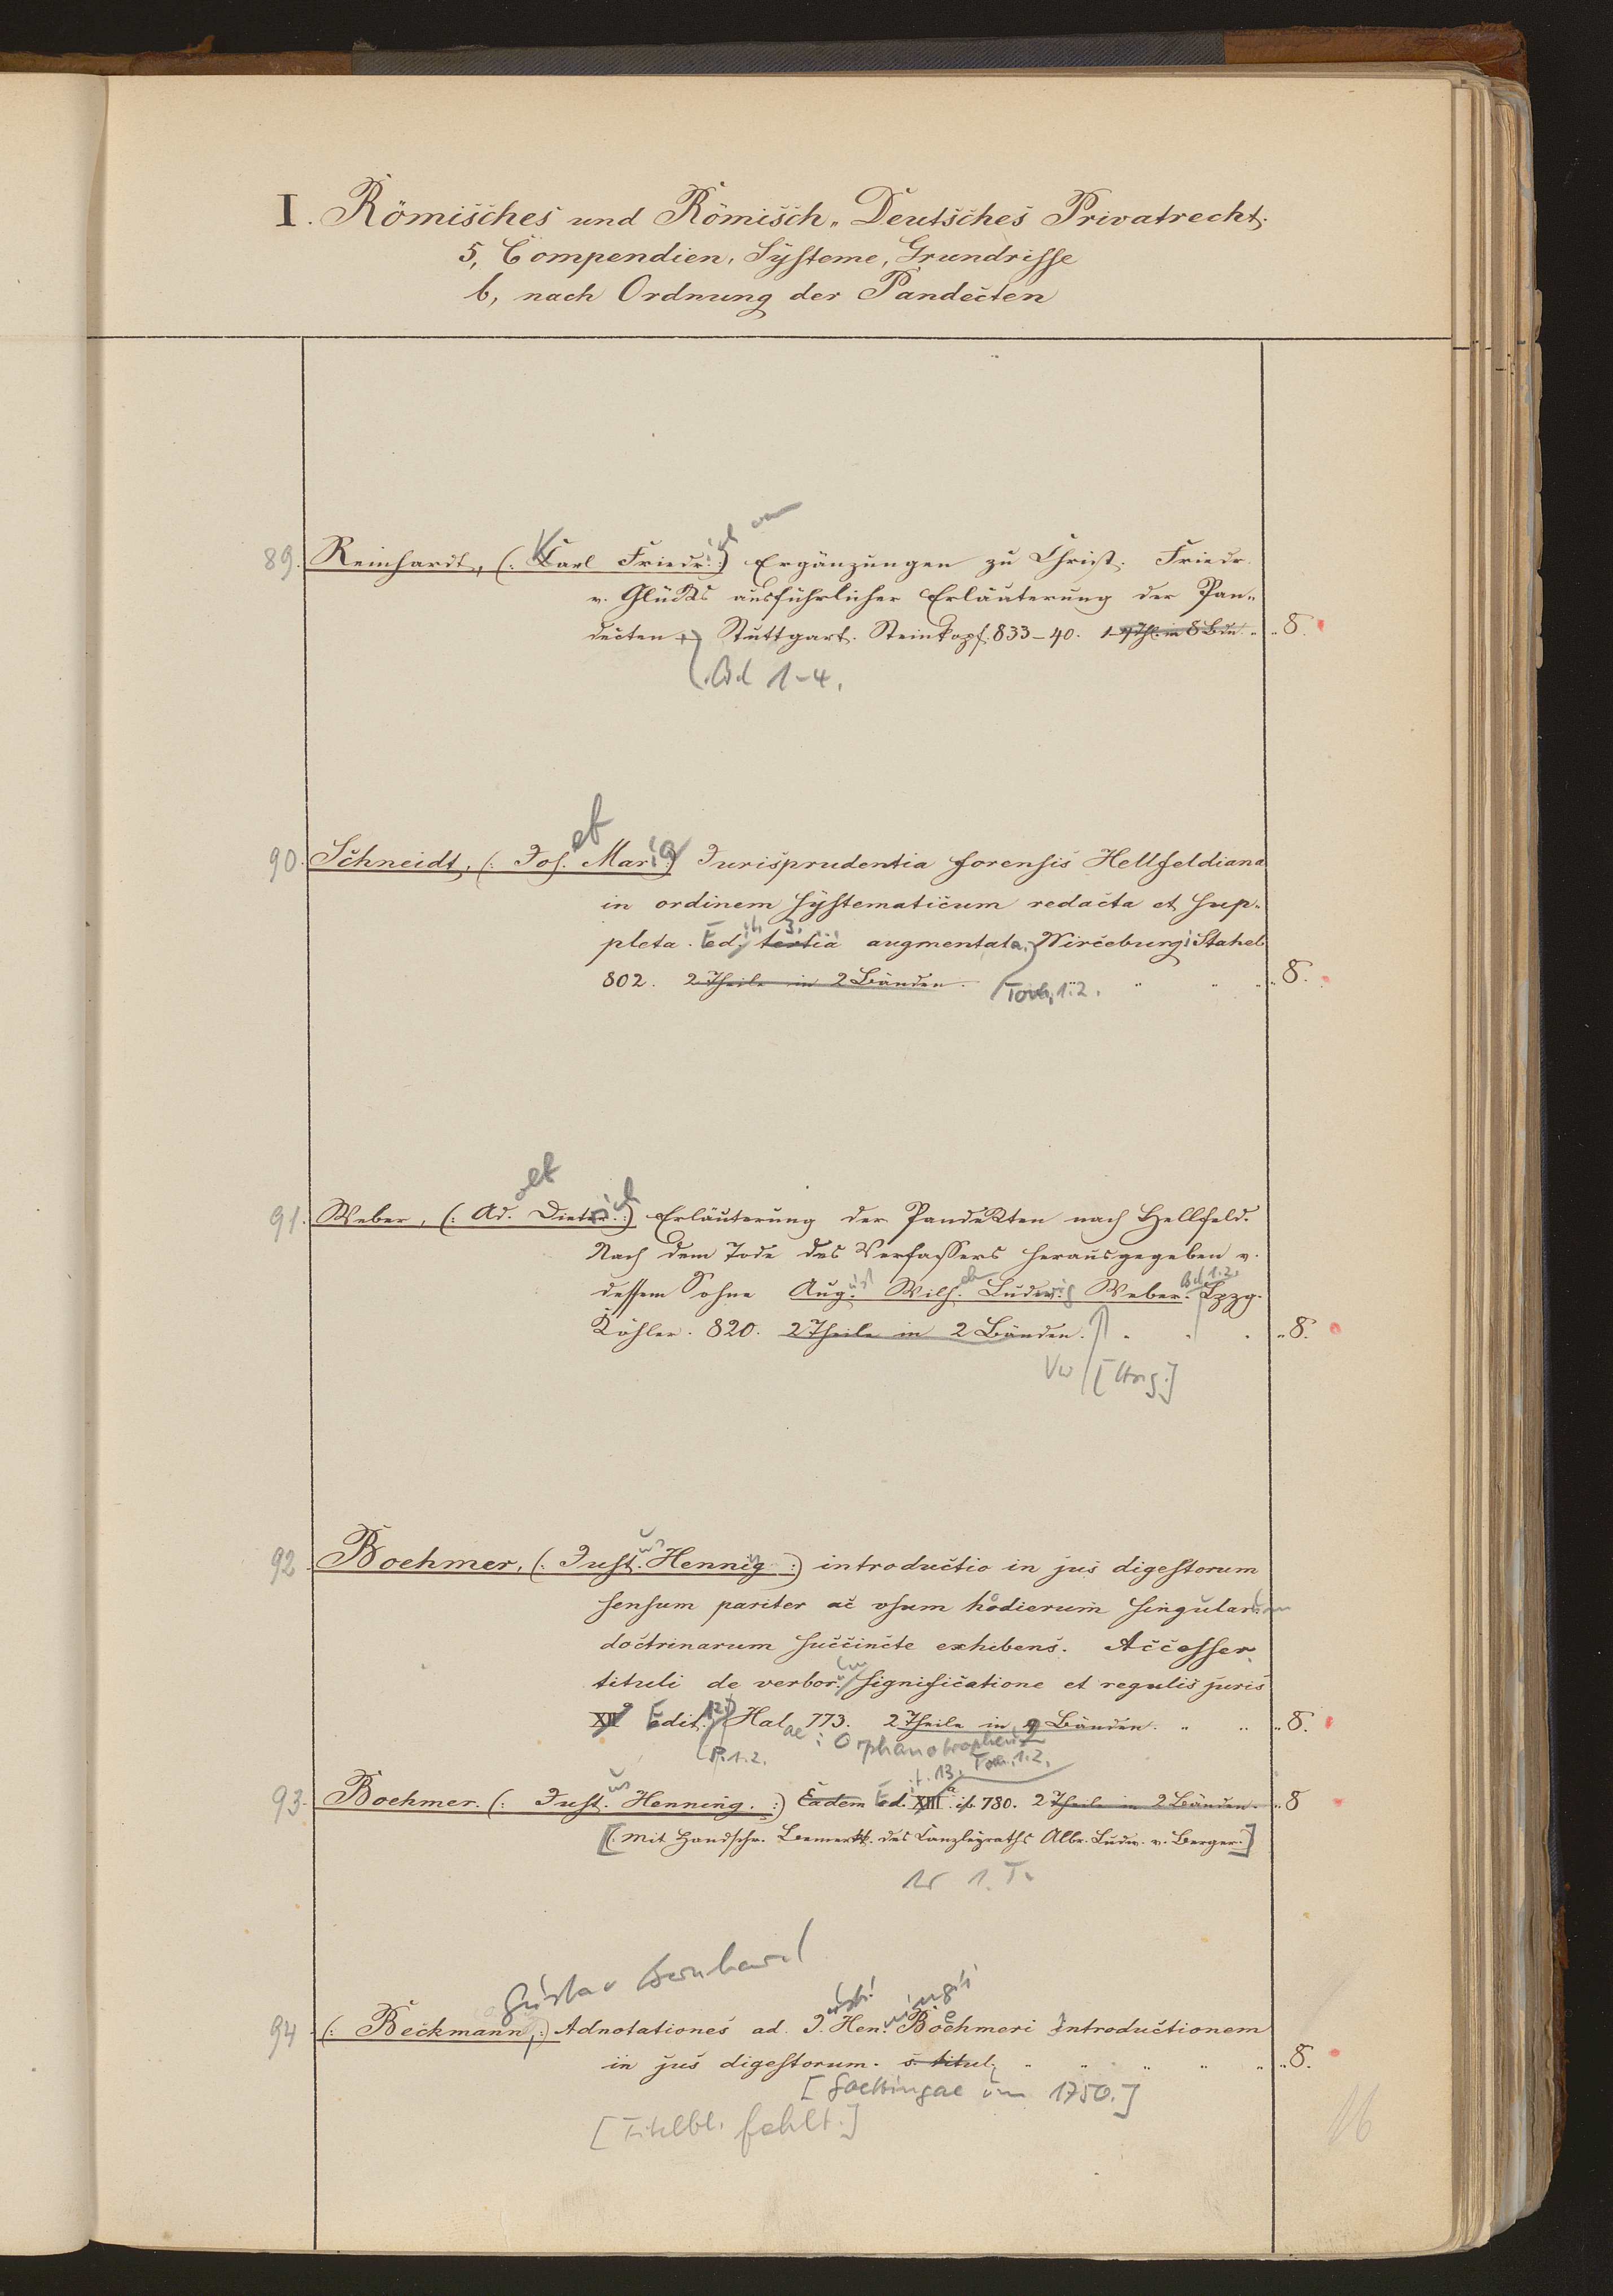 I. Römisches und Römisch-Deutsches Privatrecht.
5, Compendien, Systeme, Grundrisse
b, nach Ordnung der Pandecten
89. Reinhardt, (: Carl Friedr. :) Ergänzungen zu Christ. Friedr.
v. Glücks ausführlicher Erläuterung der Pan-
decten Stuttgart. Steinkopf. 833-40. 1-4 Thl. in 8 Bdn. 8.
Bd 1-4.
et
90. Schneidt, (: Jos. Maria :) Jurisprudentia forensis Hellfeldiana
in ordinem systematicum redacta et sup-
pleta. Ed. tertia 3. augmentata. Wirceburgi Stahel
802. 2 Theile in 2 Bänden. Tom. 1.2. 8.
et
91. Weber, (: Ad. Dietrich :) Erläuterung der Pandekten nach Hellfeld.
Nach dem Tode des Verfassers herausgegeben v.
dessem Sohne August Wilh. Ludwig Weber. Bd 1.2. Lpzg.
Köhler. 820. 2 Theile in 2 Bänden. 8.
Vw [Hrsg.]
92. Boehmer, (: Just. Hennig :) introductio in jus digestorum
sensum pariter ac vsum hodierum singular.
doctrinarum succincte exhibens. Accesser.
tituli de verbor. significatione et regulis juris
XII Edit. 12. Halae 773. 2 Theile in 2 Bänden. 8.
P. 1.2. : Orphanotropheum
13. Tom. 1.2.
93. Boehmer. (: Just. Henning. :) Eadem Ed. XIII. ib. 780. 2 Theile in 2 Bänden. 8
[(: Mit Handschr. Bemerkk. des Canzleyraths Albr. Ludw. v. Berger.]
1. T.
Gustav Bernhard
94. (: Beckmann, :) Adnotationes ad J. Hen. Boehmeri Introductionem
in jus digestorum. s. titul. 8.
[Goettingae um 1750.]
[Titelbl. fehlt.]
16